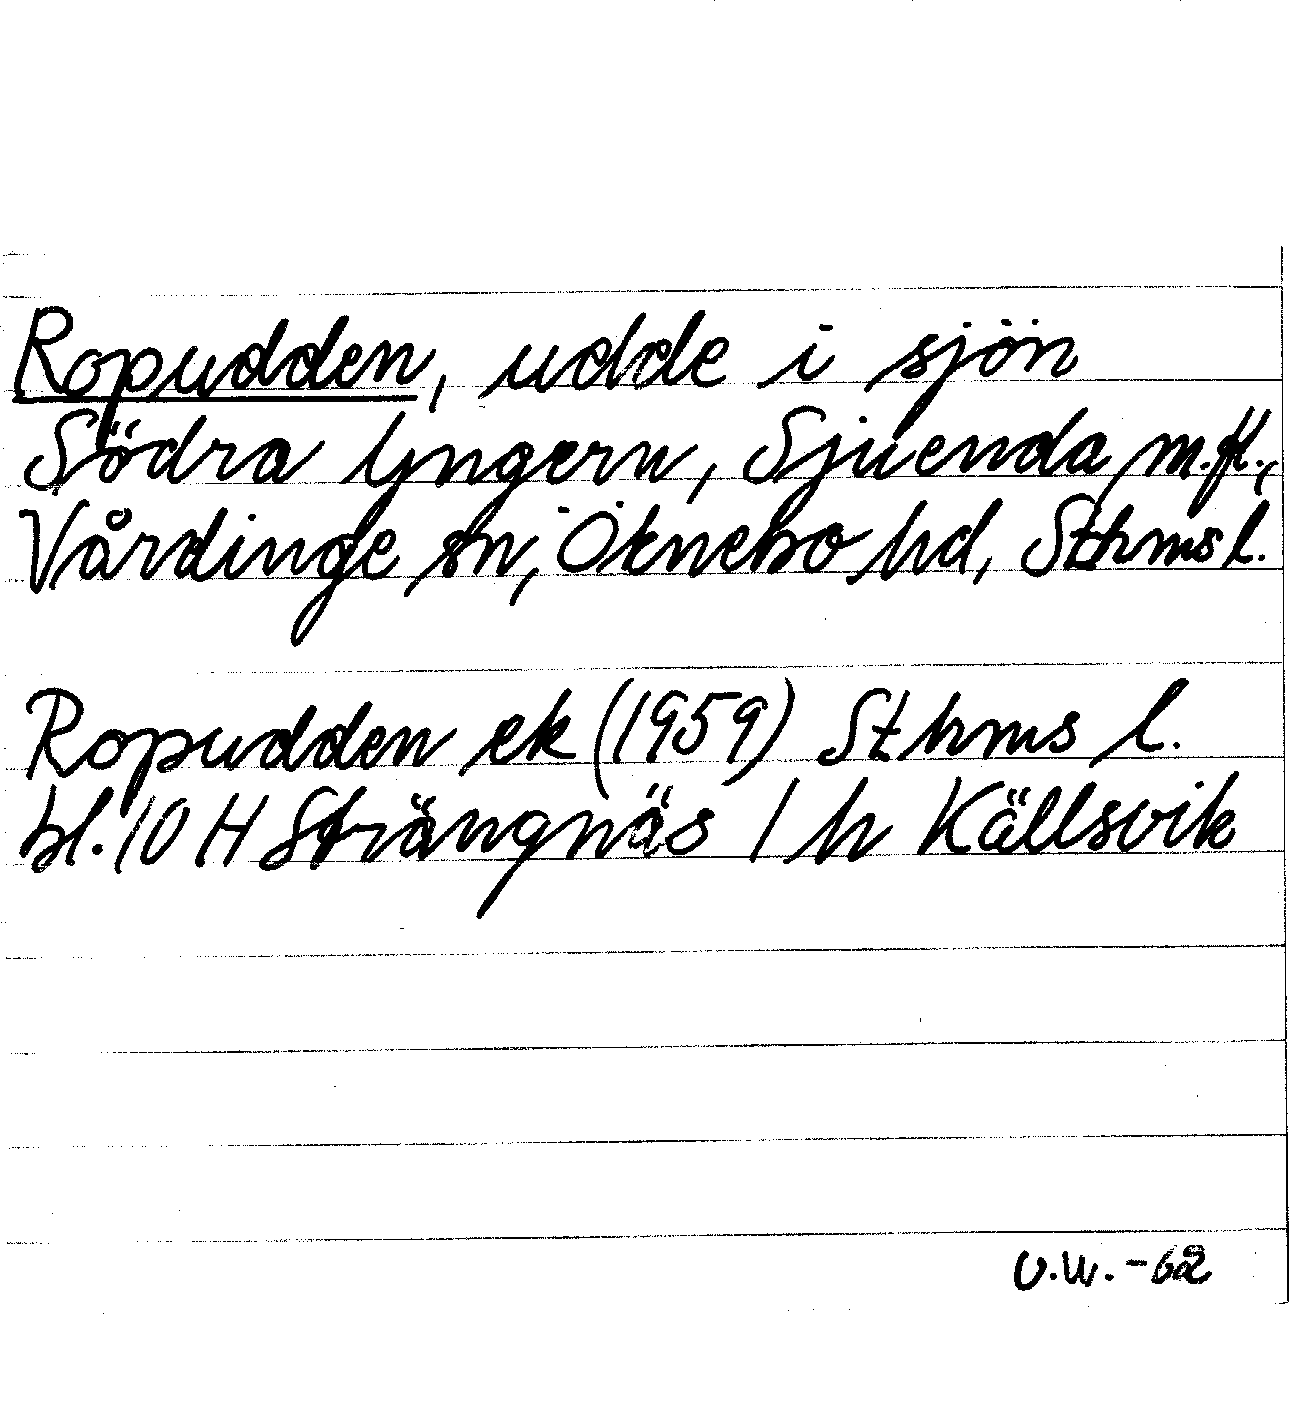 Ropudden, udde i sjön
Södra Yngern, Sjuenda m.fl.,
Vårdinge sn, Öknebo hd, Sthms l.
Ropudden ek (1959) Sthms l.
bl. 10 H Strängnäs / h Källsvik
U.W. -62